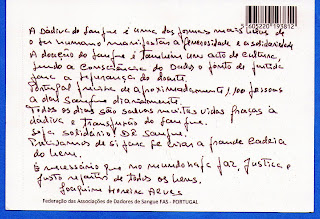 5605220193812
A Dádiva de Sangue é uma das formas mais nobres de
o ser humano manifestar a generosidade e a solidariedade
A doação de Sangue é também um acto de cultura,
sendo a consciência do Dador o ponto de partida
para a segurança do doente.
Portugal precisa de aproximadamente 1,100 pessoas
a dar Sangue diariamente.
Todos os dias são salvas muitas vidas graças à
dádiva e transfusão do Sangue.
Seja solidário! Dê sangue.
Precisamos de si para se criar a grande cadeia
do bem.
É necessário que no mundo haja paz, justiça e
justa repartir de todos os bens.
Joaquim Moreira Alves
Federação das Associações de Dadores de Sangue FAS - PORTUGAL